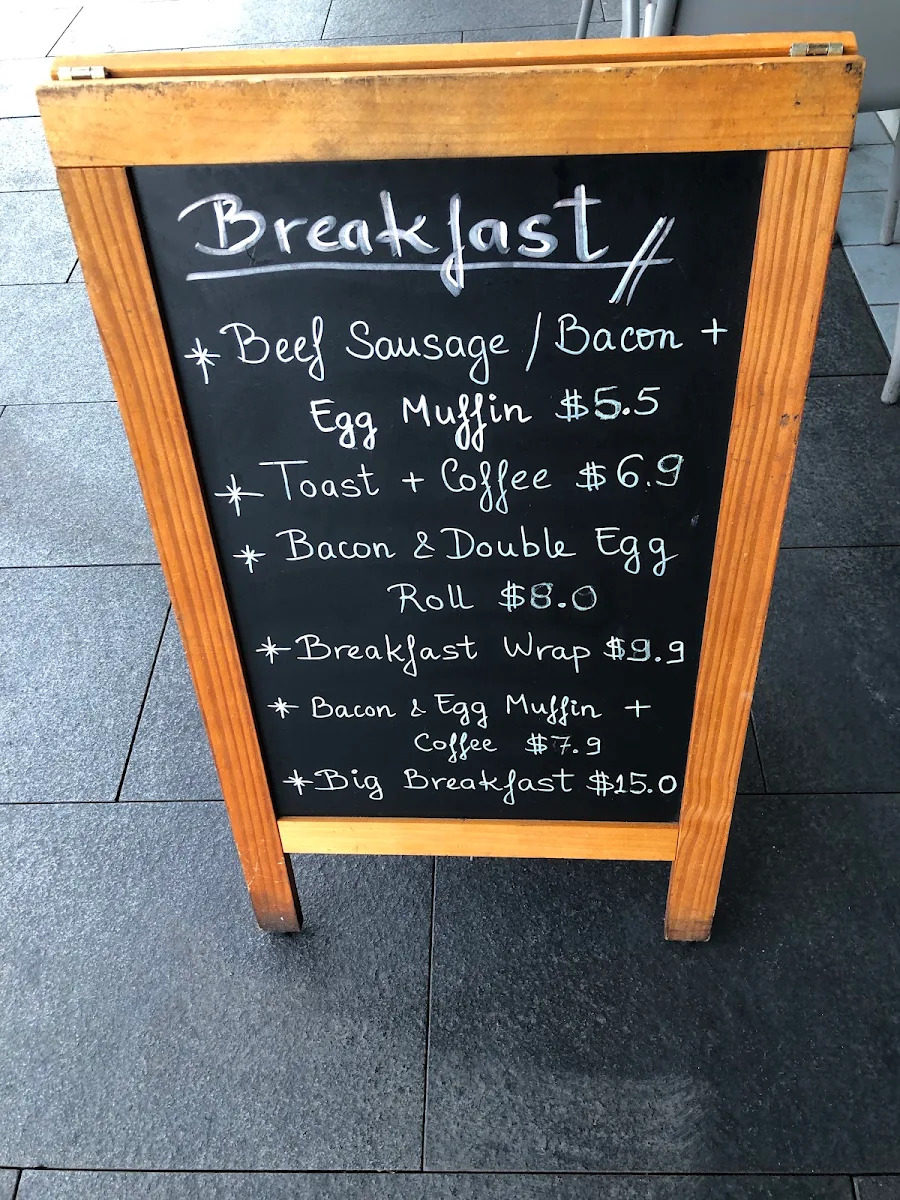 Breakfast //
* Beef Sausage / Bacon +
Egg Muffin $5.5
* Toast + Coffee $6.9
* Bacon & Double Egg
Roll $8.0
* Breakfast Wrap $9.9
* Bacon & Egg Muffin +
Coffee $7.9
* Big Breakfast $15.0